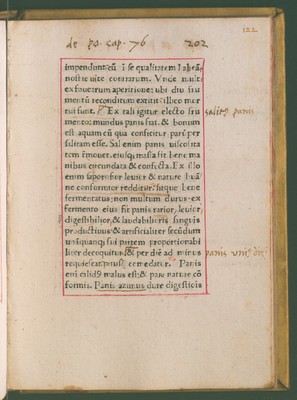 de pa. cap. 76 202
122
impendunt: cū i se qualitatem habeāt
nostre uite contrariam. Vnde mult
ex fouearum aperitione: ubi diu fru
mentū reconditum extitit: illico mor
tui sunt. Ex tali igitur electo fru
mento: mundus panis fiat. & bonum
est aquam cū qua conficitur parū per
salitam esse. Sal enim panis uiscosita
tem remouet. eiusq; massa fit bene ma
nibus circundata & confecta. Ex illo
enim saporosior leuior & nature huā
ne conformior redditur: sitque bene
fermentatus: non multum durus. ex
fermento eius fit panis rarior, leuior,
digestibilior, & laudabilior: singulis
productiuus: & artificialiter secūdum
unāquanq; sui partem proportionabi
liter decoquitur. & per diē ad minus
requiescat, priusq; comedatur. Panis
eni calidus malus est: & parū nature cō
formis. Panis azimus dure digestiois
panis
panis